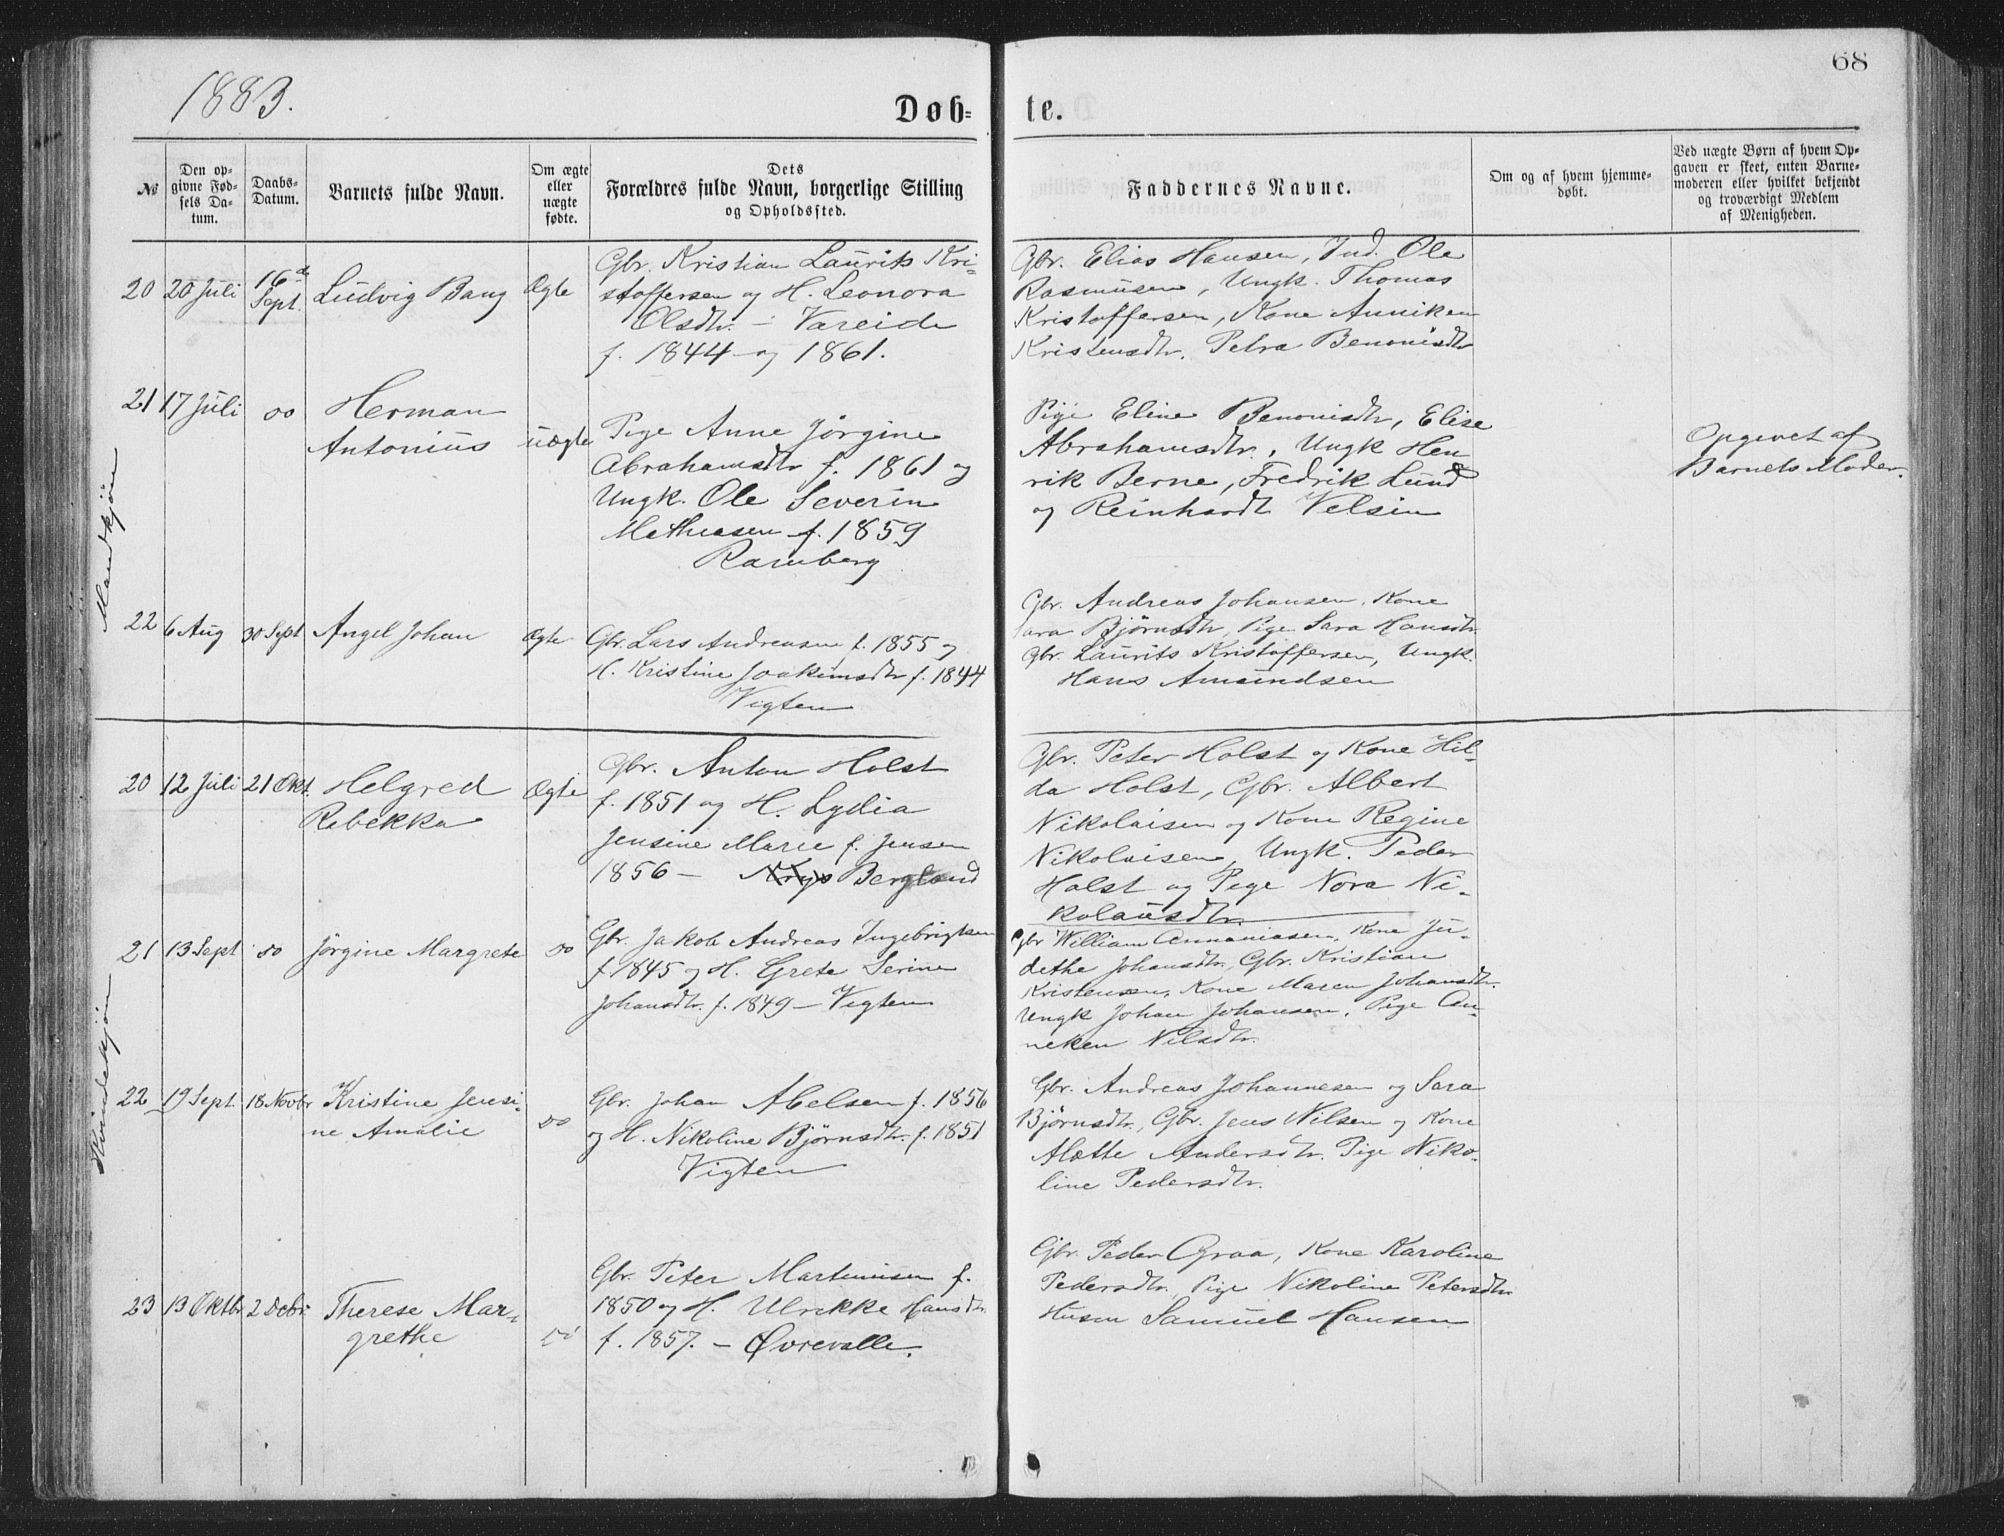 1883.
68
Døb=
te.
№
Den op-
givne Fød-
sels Da-
tum.
Daabs-
Datum.
Barnets fulde Navn.
Om ægte
eller
uægte
fødte.
Dets
Forældres fulde Navn, borgerlige Stilling
og Opholdssted.
Faddernes Navne.
Om og af hvem hjemme-
døbt.
Ved uægte Børn af hvem Op-
gaven er skeet, enten Barne-
moderen eller hvilket bekjendt
og troværdigt Medlem
af Menigheden.
Mandkjøn
20
20 Juli
16de
Sept.
Ludvig Bang
Ægte
Gbr. Kristian Laurits Kri-
stoffersen og H. Leonora
Olsdtr. - Vareide
f. 1844 og 1861.
Gbr. Elias Hansen, Ind. Ole
Rasmusen, Ungk. Thomas
Kristoffersen, Kone Anniken
Kristensdtr. Petra Benonisdtr
21
17 Juli
do
Herman
Antonius
uægte
Pige Anne Jørgine
Abrahamsdtr f. 1861 og
Ungk. Ole Severin
Mathiasen f. 1859
Ramberg
Pige Eline Benonisdtr, Elise
Abrahamsdtr., Ungk Hen
rik Berne, Fredrik Lund
og Reinhardt Velsin
Opgevet af
Barnets Moder.
22
6 Aug
30 Sept
Angel Johan
Ægte
Gbr. Lars Andreasen f. 1855 og
H. Kristine Joakimsdtr f. 1844
Vigten
Gbr. Andreas Johansen, Kone
Sara Bjørnsdtr, Pige Sara Hansdtr
Gbr. Laurits Kristoffersen, Ungk.
Hans Amundsen
Kvindekjøn
20
12 Juli
21 Okt.
Helgred
Rebekka
Ægte
Gbr. Anton Holst
f. 1851 og H. Lydia
Jensine Marie f. Jensen
1856 - Bergland
Gbr. Peter Holst og Kone Hil-
da Holst, Gbr. Albert
Nikolaisen og Kone Regine
Nikolaisen, Ungk. Peder
Holst og Pige Nora Ni-
kolaisdtr.
21
13 Sept
do
Jørgine Margrete
do
Gbr. Jakob Andreas Ingebrigtsen
f. 1845 og H. Grete Serine
Johansdtr. f. 1849 - Vigten
Gbr William Annaniasen, Kone Ju-
dethe Johansdtr, Gbr. Kristian
Kristensen, Kone Maren Johansdtr.
Ungk Johan Johansen, Pige An-
neken Nilsdtr.
22
19 Sept.
18 Novbr
Kristine Jensi-
ne Amalie
do
Gbr. Johan Abelsen f. 1856
og H. Nikoline Bjørnsdtr. f. 1851
Vigten
Gbr. Andreas Johannesen og Sara
Bjørnsdtr., Gbr. Jens Nilsen og Kone
Alette Andersdtr. Pige Niko-
line Pedersdtr.
23
13 Oktbr
2 Debr
Therese Mar-
grethe
do
Gbr. Peter Martinusen f.
1850 og H. Ulrikke Hansdtr.
f. 1857. - Øvrevalle.
Gbr. Peder Graa, Kone Karoline
Pedersdtr, Pige Nikoline Petersdtr
Husm Samuel Hansen